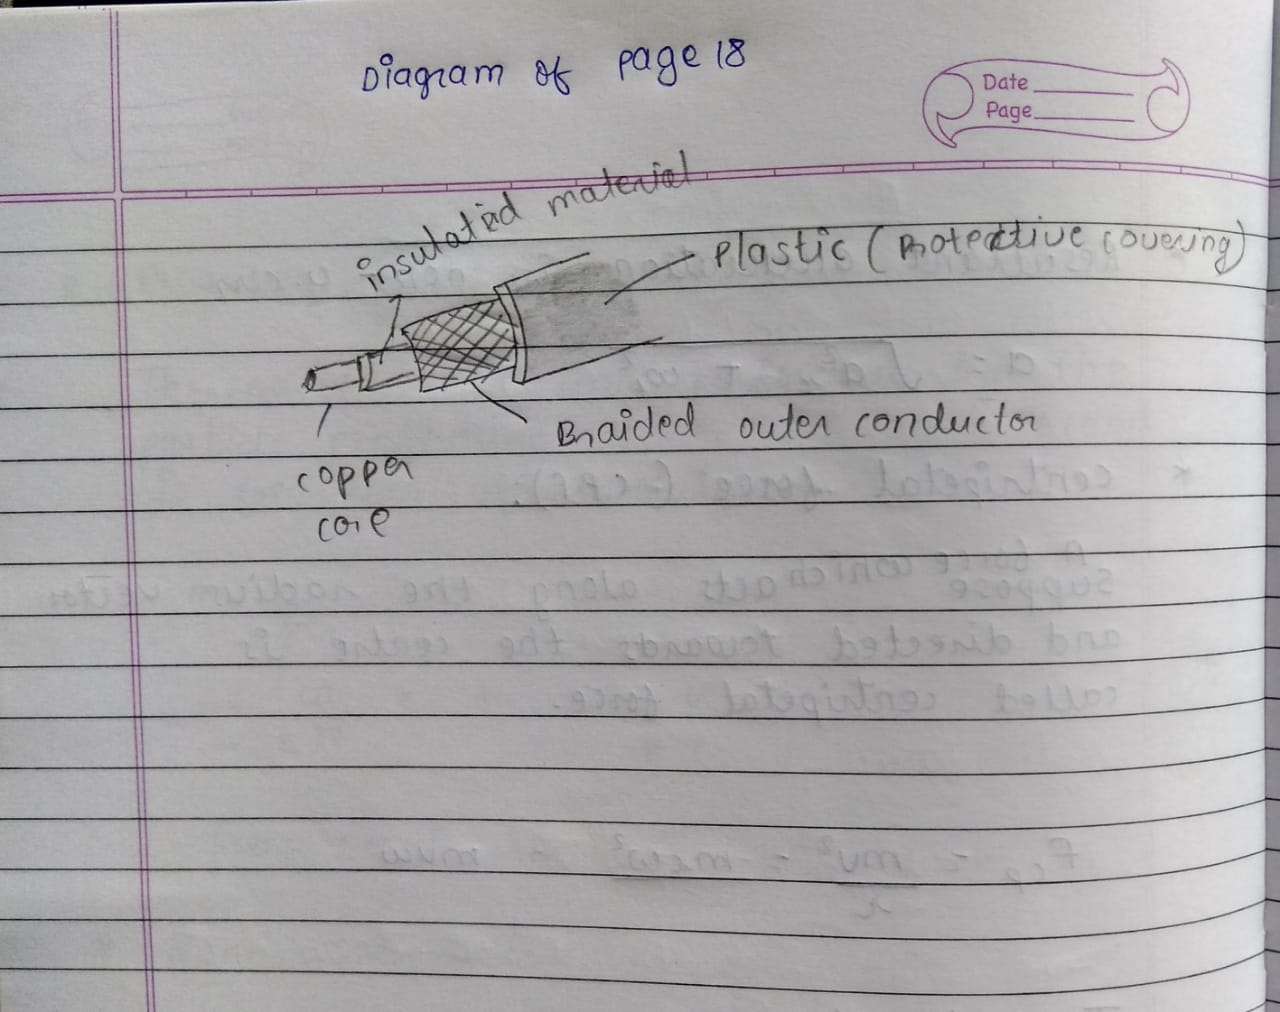 Diagram of page 18
Date
Page
insulated material
Plastic (Protective covering)
Braided outer conductor
copper
core